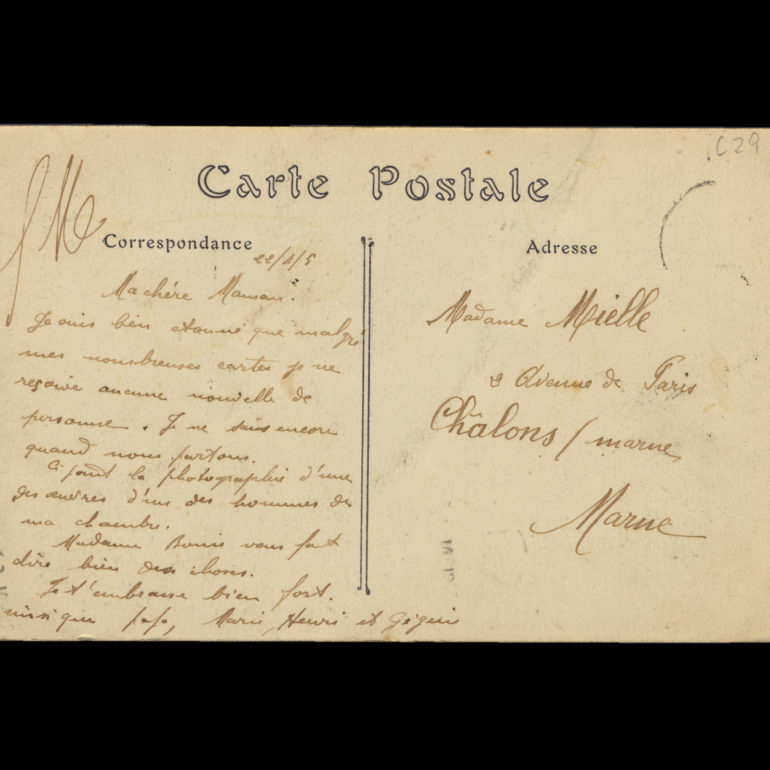 C29
Carte Postale
FM
Correspondance
Adresse
22/4/5
Ma chère Maman.
Je suis bien étonné que malgré
mes nombreuses cartes je ne
reçoive aucune nouvelle de
personne. Je ne sais encore
quand nous partons.
Ci joint la photographie d'une
des œuvres d'un des hommes de
ma chambre.
Madame Bonis vous fait
dire bien des choses.
Je t'embrasse bien fort.
ainsi que papa, Marie, Henri et
Madame Mielle
2 Avenue de Paris
Châlons / marne
Marne